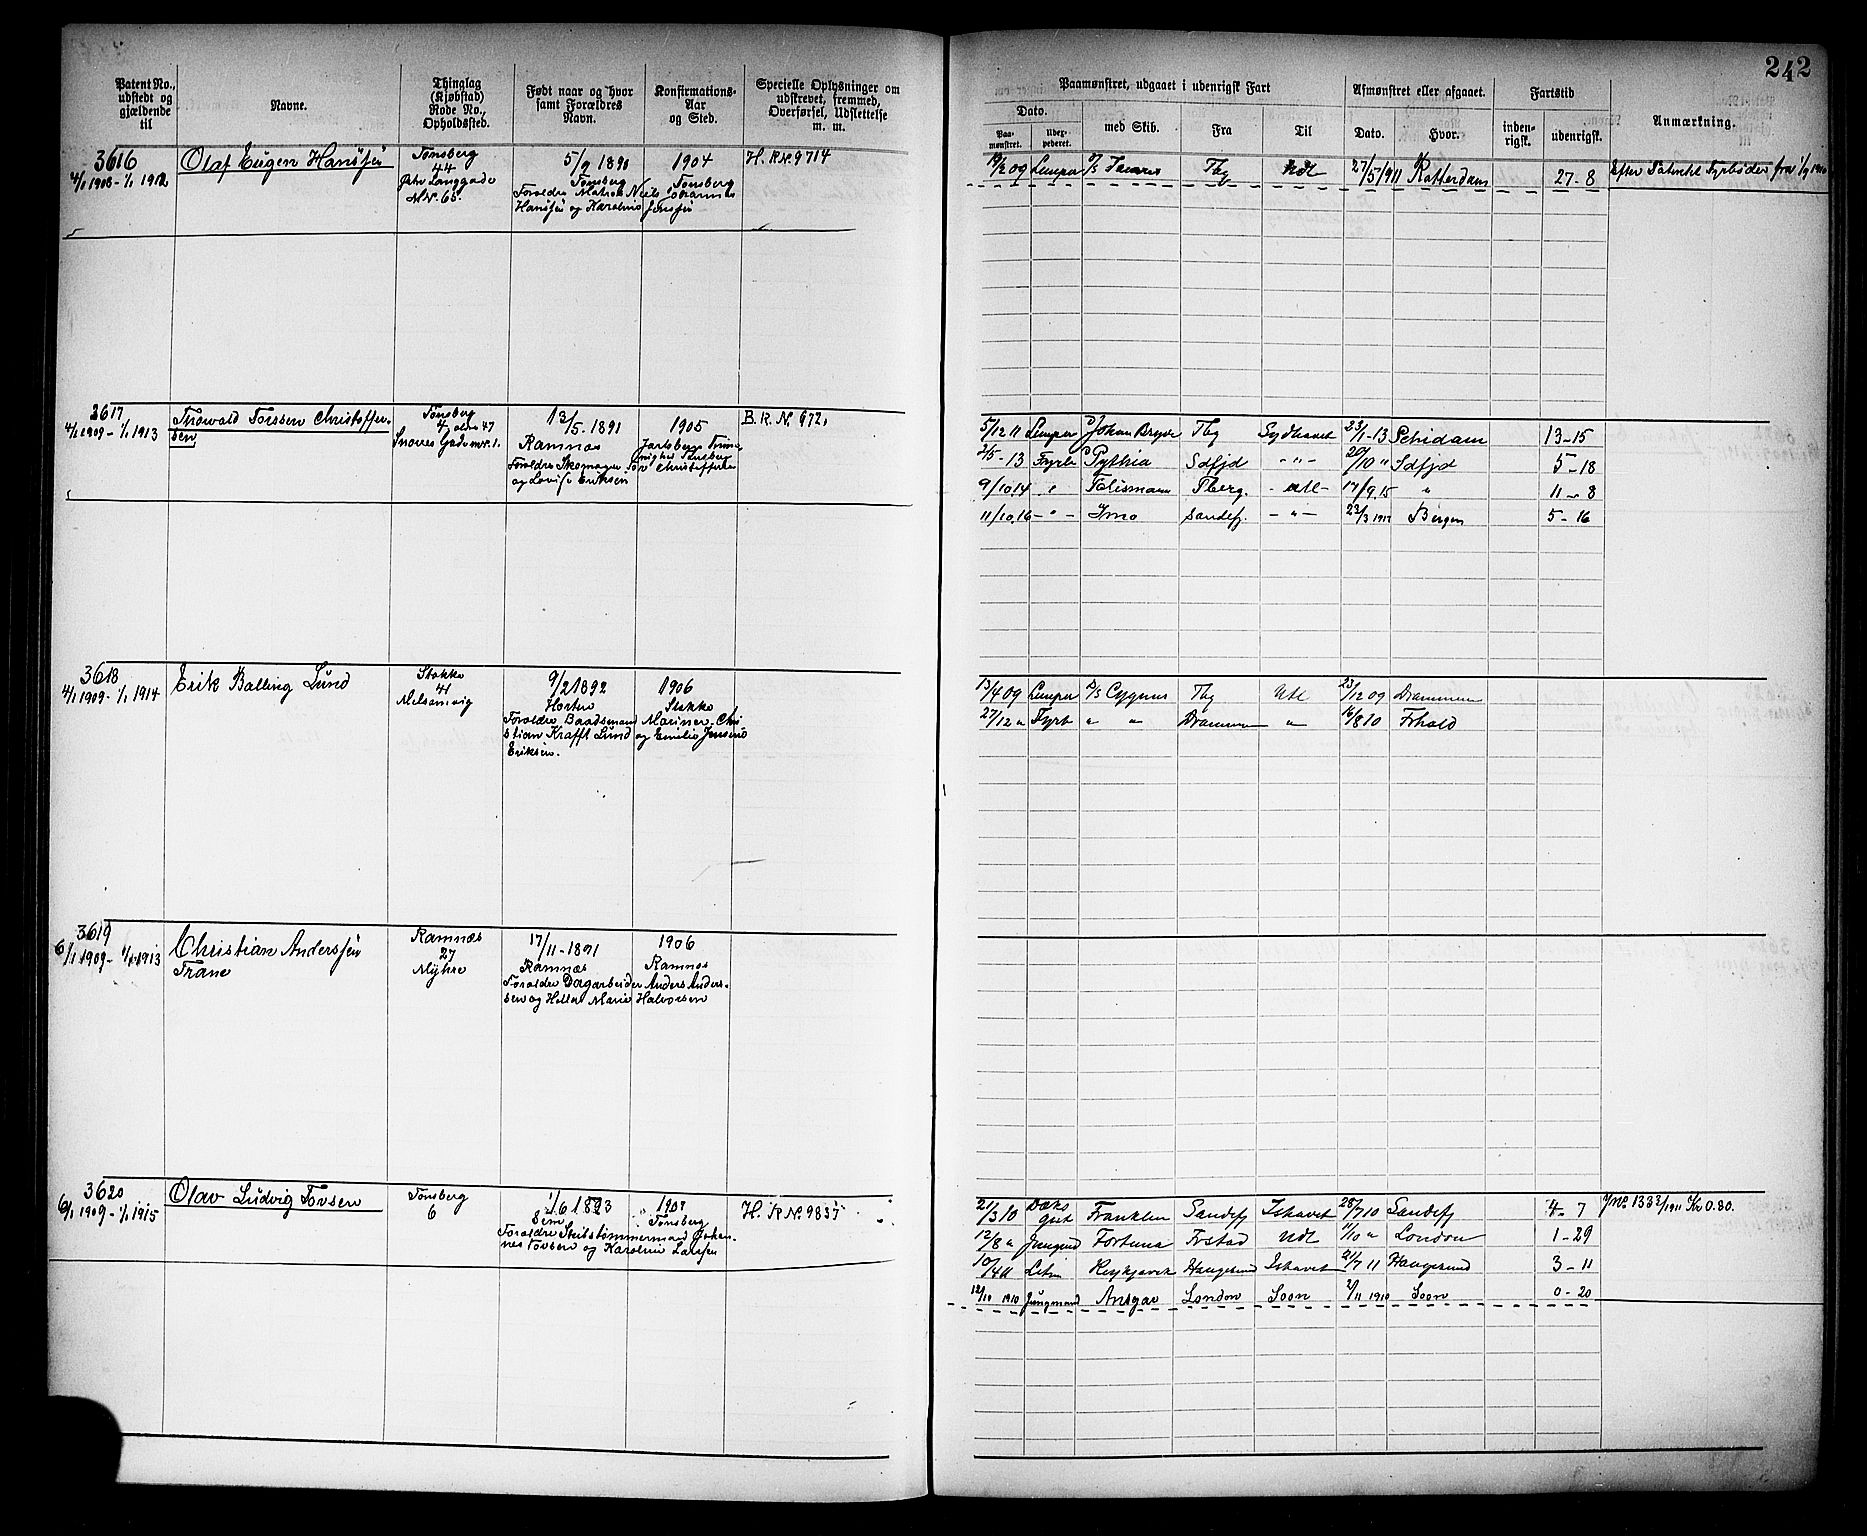 242
Patent No., udstedt og gjældende til
Navne.
Thinglag (Kjøbstad) Rode No., Opholdssted.
Født naar og hvor samt Forældres Navn.
Konfirmations- Aar og Sted.
Specielle Oplysninger om udskrevet, fremmed, Overførsel, Udslettelse m. m.
Paamønstret, udgaaet i udenrigsk Fart
Afmønstret eller afgaaet.
Fartstid
Anmærkning.
Dato.
Paa- mønstret.
med Skib.
Fra
Til
Dato.
Hvor.
inden- rigsk.
udenrigsk.
3616
4/1 1908 - 1/1 1912
Olaf Eugen Hansen
Tønsberg
44
Østre Langgade
M Nr. 65.
5/9 1890
Tønsberg
Forældre Matros Niels Johannes
Hansen og Karoline Jensen
1904
Tønsberg
H. R. N. 9714
19/2 09 Lemper
Tbg
Udl
27/5 1911 Rotterdam
27-8
Efter Patentet Fyrbøder fra
3617
4/1 1909 - 1/1 1913
Thorvald Torssen Christoffer-
sen
Tønsberg
47
13/5 - 1891
Ramnæs
Forældre Skomager Tor Christoffersen
og Lovise Eriksen
1905
Jarlsbergs Frime-
nighed Tønsberg
B. R. N. 972,
5/12 11 Lemper Johan Bryde Tbg Sydhavet 23/1-13 Schidam 13-15
2/5-13 Fyrb Pythia Sdfjd -"- 20/10 " Sdfjd 5-18
9/10 14 " Talisman Tberg. - Atl - 17/9 15 " 11-8
11/10 16 -"- Imo Sandefj. -"- 23/3 1917 Bergen 5-16
3618
4/1 1909 - 1/1 1914
Erik Balling Lund
Stokke
41
Melsomvig
9/2 1892
Horten
Forældre Baadsmand Mariner. Chri-
stian Krafft Lund og Emilie Jensine
Eriksen.
1906
Stokke
13/4 09 Lemper D/S Cygnus Tbg Atl 23/12 09 Drammen
27/12 " Fyrb " " Drammen " 16/8 10 Frhald
3619
6/1 1909 - 1/1 1913
Christian Anderssen
Trane
Ramnæs
27
Myhre
17/11 - 1891
Ramnæs
Forældre Dagarbeider Anders Anders-
sen og Helle Marie Halvorsen
1906
Ramnæs
3620
6/1 1909 - 1/1 1915
Olav Ludvig Tovsen
Tønsberg
6
1/6 1893
Sem
Forældre Skibstømmermand Johan-
nes Tovsen og Karoline Larsen
1908
Tønsberg
H. R. N. 9835
21/3 10 Dæks
gut Franklin Sandefj Ishavet 28/7 10 Sandefj 4-7
Jnl. 1333/1911 Kr 0.80.
12/8 " Jungmd Fortuna Frstad Udl 11/10 " London 1-29
10/4 11 Letm Reykjavik Haugesund Ishavet 21/7 11 Haugesund 3-11
12/10 1910 Jungmand Ansgar London Soon 2/11 1910 Soon 0-20